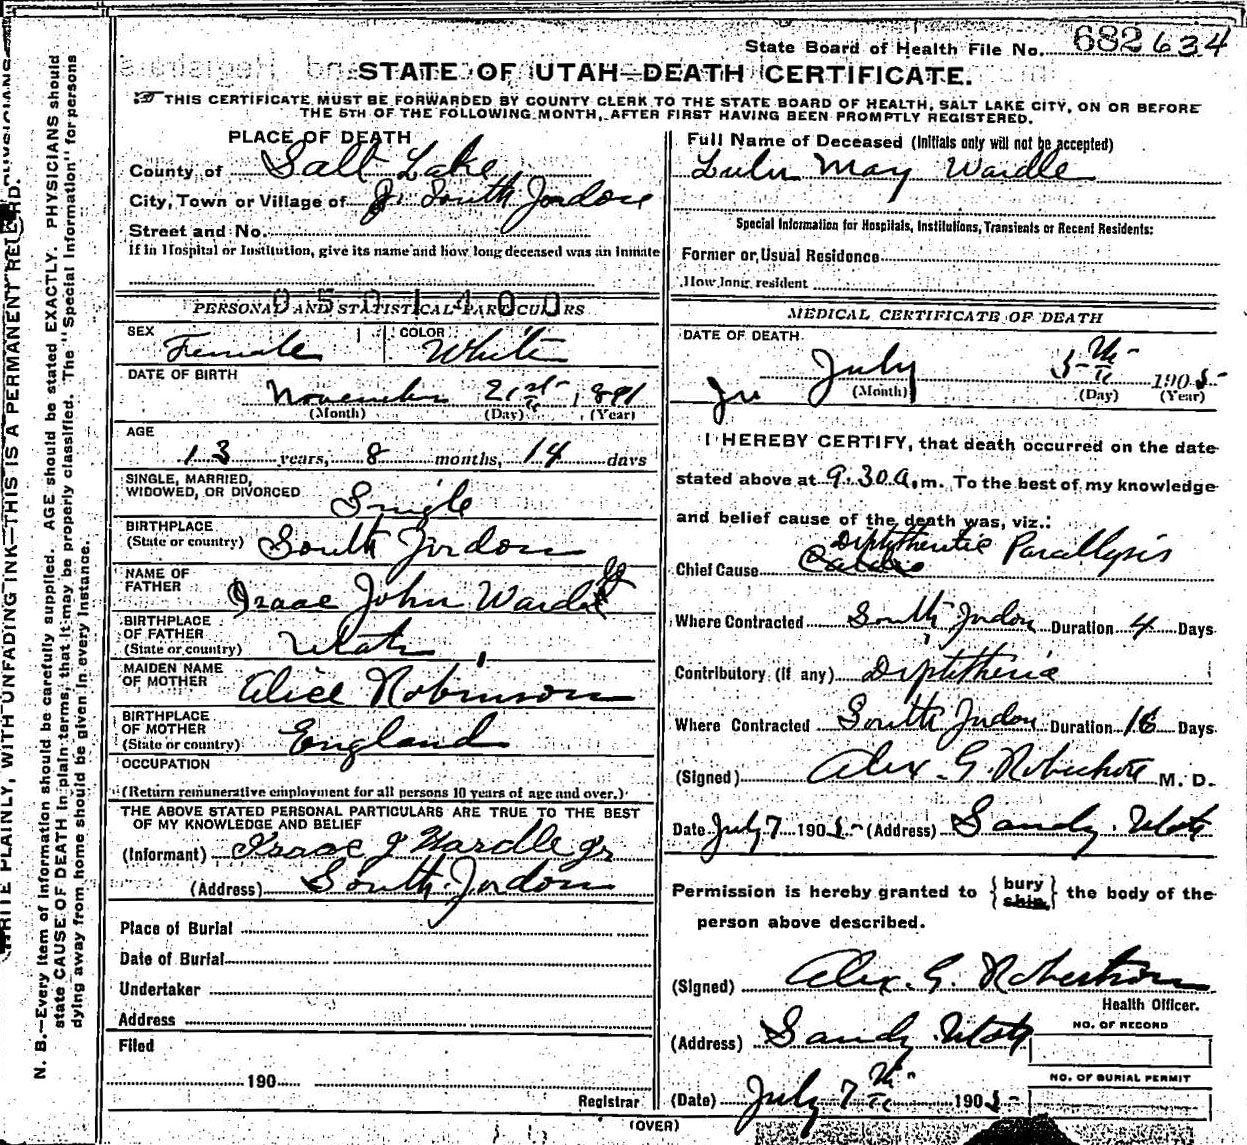 State Board of Health File No. 682634
STATE OF UTAH—DEATH CERTIFICATE.
THIS CERTIFICATE MUST BE FORWARDED BY COUNTY CLERK TO THE STATE BOARD OF HEALTH, SALT LAKE CITY, ON OR BEFORE
THE 5TH OF THE FOLLOWING MONTH, AFTER FIRST HAVING BEEN PROMPTLY REGISTERED.
PLACE OF DEATH
County of Salt Lake
City, Town or Village of South Jordon
Street and No.
If in Hospital or Institution, give its name and how long deceased was an inmate
0501400
PERSONAL AND STATISTICAL PARTICULARS
SEX Female COLOR White
DATE OF BIRTH
November 21st 1891
(Month) (Day) (Year)
AGE
13 years, 8 months, 14 days
SINGLE, MARRIED,
WIDOWED, OR DIVORCED Single
BIRTHPLACE
(State or country) South Jordon
NAME OF
FATHER Isaac John Wardle Jr
BIRTHPLACE
OF FATHER
(State or country) Utah
MAIDEN NAME
OF MOTHER Alice Robinson
BIRTHPLACE
OF MOTHER
(State or country) England
OCCUPATION
(Return remunerative employment for all persons 10 years of age and over.)
THE ABOVE STATED PERSONAL PARTICULARS ARE TRUE TO THE BEST
OF MY KNOWLEDGE AND BELIEF
(Informant) Isaac J Wardle Jr
(Address) South Jordon
Place of Burial
Date of Burial
Undertaker
Address
Filed
190
Registrar
Full Name of Deceased (Initials only will not be accepted)
Lulu May Wardle
Special Information for Hospitals, Institutions, Transients or Recent Residents:
Former or Usual Residence
How long resident
MEDICAL CERTIFICATE OF DEATH
DATE OF DEATH
July 5th 1905
(Month) (Day) (Year)
I HEREBY CERTIFY, that death occurred on the date
stated above at 9.30 a.m. To the best of my knowledge
and belief cause of the death was, viz.:
Chief Cause Diphtheritic Parallysis
Where Contracted South Jordon Duration 4 Days
Contributory (if any) Diphtheria
Where Contracted South Jordon Duration 18 Days
(Signed) Alex. G. Robertson M. D.
Date July 7 1905 (Address) Sandy. Utah
Permission is hereby granted to { bury ship } the body of the
person above described.
(Signed) Alex. G. Robertson
Health Officer.
(Address) Sandy Utah
NO. OF RECORD
NO. OF BURIAL PERMIT
(Date) July 7th 1905
(OVER)
WRITE PLAINLY, WITH UNFADING INK—THIS IS A PERMANENT RECORD.
N. B.—Every item of information should be carefully supplied. AGE should be stated EXACTLY. PHYSICIANS should
state CAUSE OF DEATH in plain terms, that it may be properly classified. The "Special Information" for persons
dying away from home should be given in every instance.